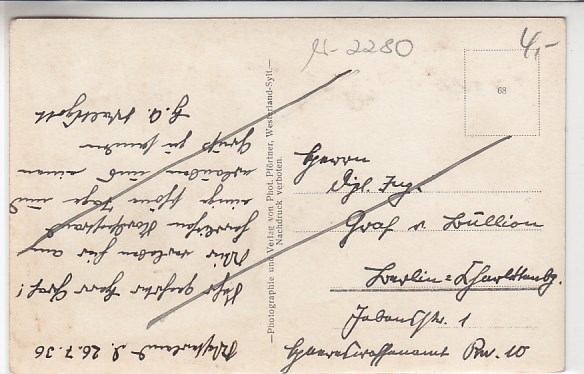 Westerland d. 26.7.36
Sehr geehrter Herr Graf!
Wir erleben hier am
herrlichen Nordseestrand
einige schöne Tage und
erlauben uns einen
Gruß zu senden
—Photographie und Verlag von Phot. Pförtner, Westerland-Sylt.—
Nachdruck verboten.
N-2280
4,-
68
Herrn
Dipl. Ing.
Graf v Büllion
Berlin=Charlottenbg.
Jebensstr. 1
Heereswaffenamt Prw. 10